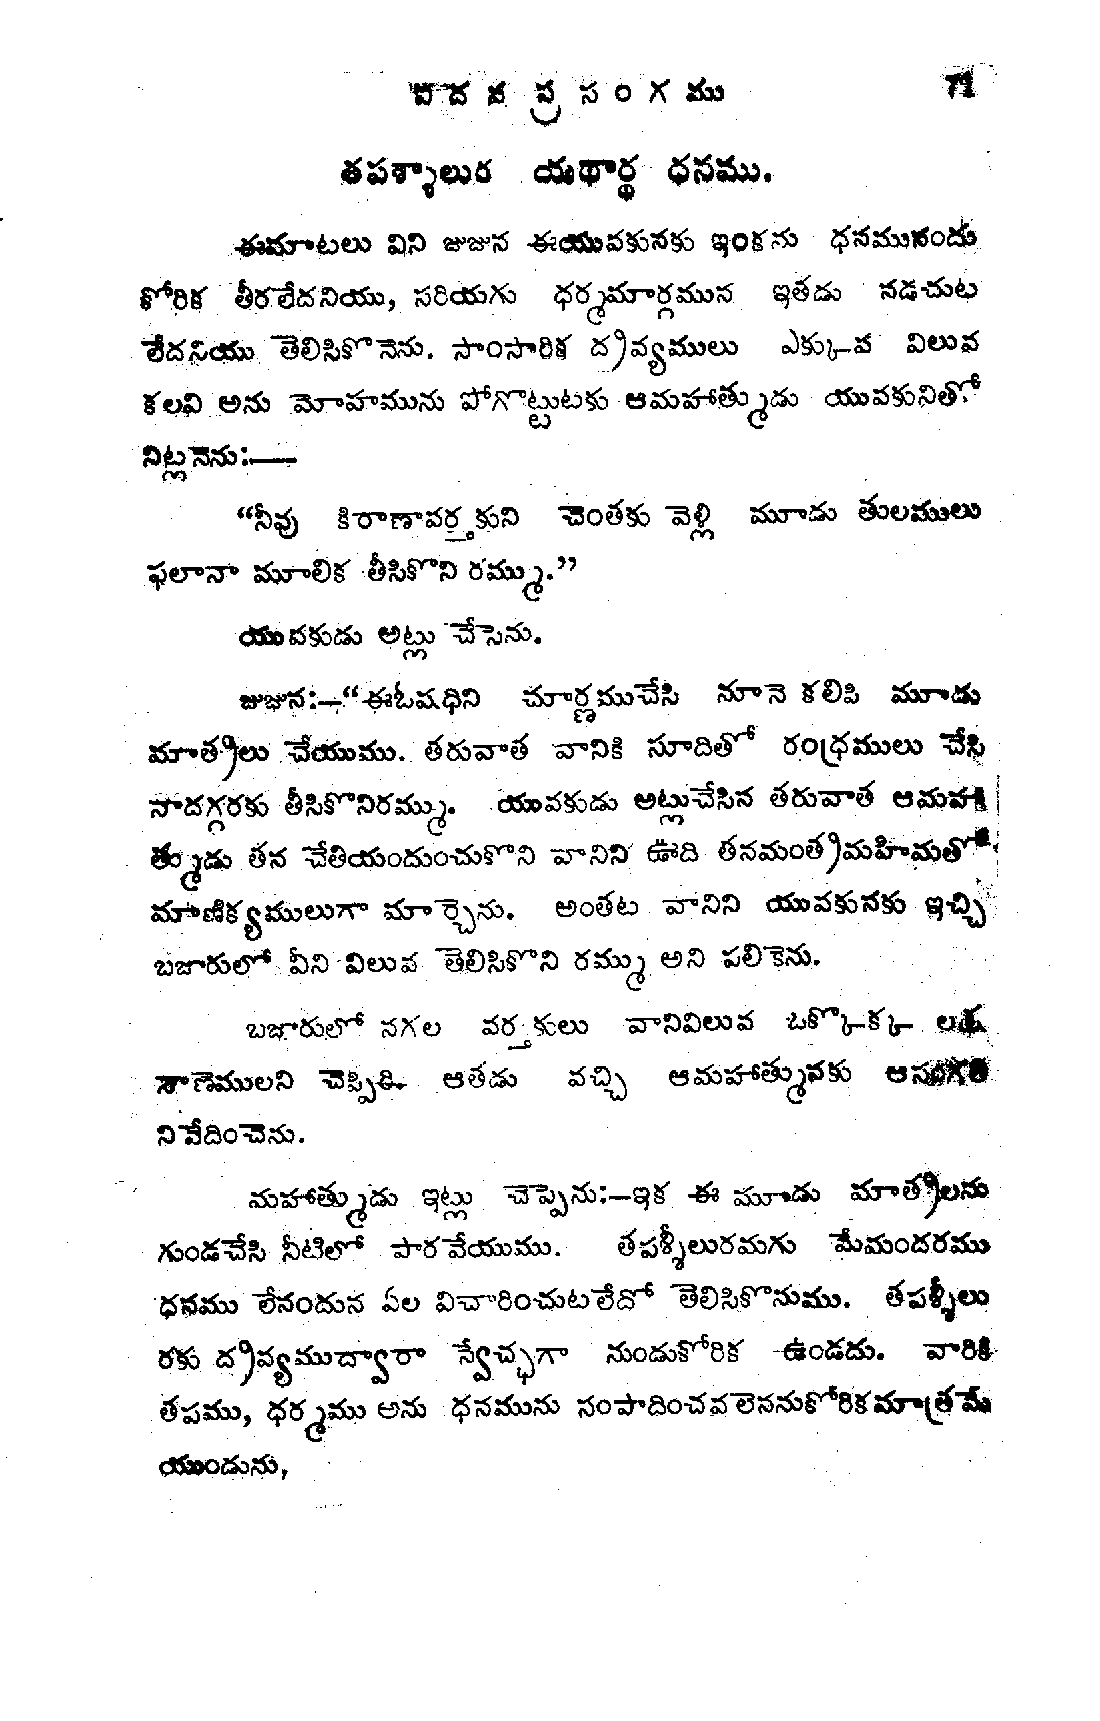 ఐదవ ప్రసంగము 71
తపశ్శాలుర యథార్థ ధనము.
ఈమాటలు విని జుజున ఈయువకునకు ఇంకను ధనమునందు
కోరిక తీరలేదనియు, సరియగు ధర్మమార్గమున ఇతడు నడచుట
లేదనియు తెలిసికొనెను. సాంసారిక ద్రవ్యములు ఎక్కువ విలువ
కలవి అను మోహమును పోగొట్టుటకు ఆమహాత్ముడు యువకునితో
నిట్లనెను:—
“నీవు కిరాణావర్తకుని చెంతకు వెళ్లి మూడు తులములు
ఫలానా మూలిక తీసికొని రమ్ము.”
యువకుడు అట్లు చేసెను.
జుజున:—“ఈఓషధిని చూర్ణముచేసి నూనె కలిపి మూడు
మాత్రలు చేయుము. తరువాత వానికి సూదితో రంధ్రములు చేసి
నాదగ్గరకు తీసికొనిరమ్ము. యువకుడు అట్లుచేసిన తరువాత ఆమహా
త్ముడు తన చేతియందుంచుకొని వానిని ఊది తనమంత్రమహిమతో
మాణిక్యములుగా మార్చెను. అంతట వానిని యువకునకు ఇచ్చి
బజారులో వీని విలువ తెలిసికొని రమ్ము అని పలికెను.
బజారులో నగల వర్తకులు వానివిలువ ఒక్కొక్క లక్ష
నాణెములని చెప్పిరి. ఆతడు వచ్చి ఆమహాత్మునకు ఆసంగతి
నివేదించెను.
మహాత్ముడు ఇట్లు చెప్పెను:—ఇక ఈ మూడు మాత్రలను
గుండచేసి నీటిలో పారవేయుము. తపశ్శీలురమగు మేమందరము
ధనము లేనందున ఏల విచారించుటలేదో తెలిసికొనుము. తపశ్శీలు
రకు ద్రవ్యముద్వారా స్వేచ్ఛగా నుండుకోరిక ఉండదు. వారికి
తపము, ధర్మము అను ధనమును సంపాదించవలెననుకోరికమాత్రమే
యుండును,